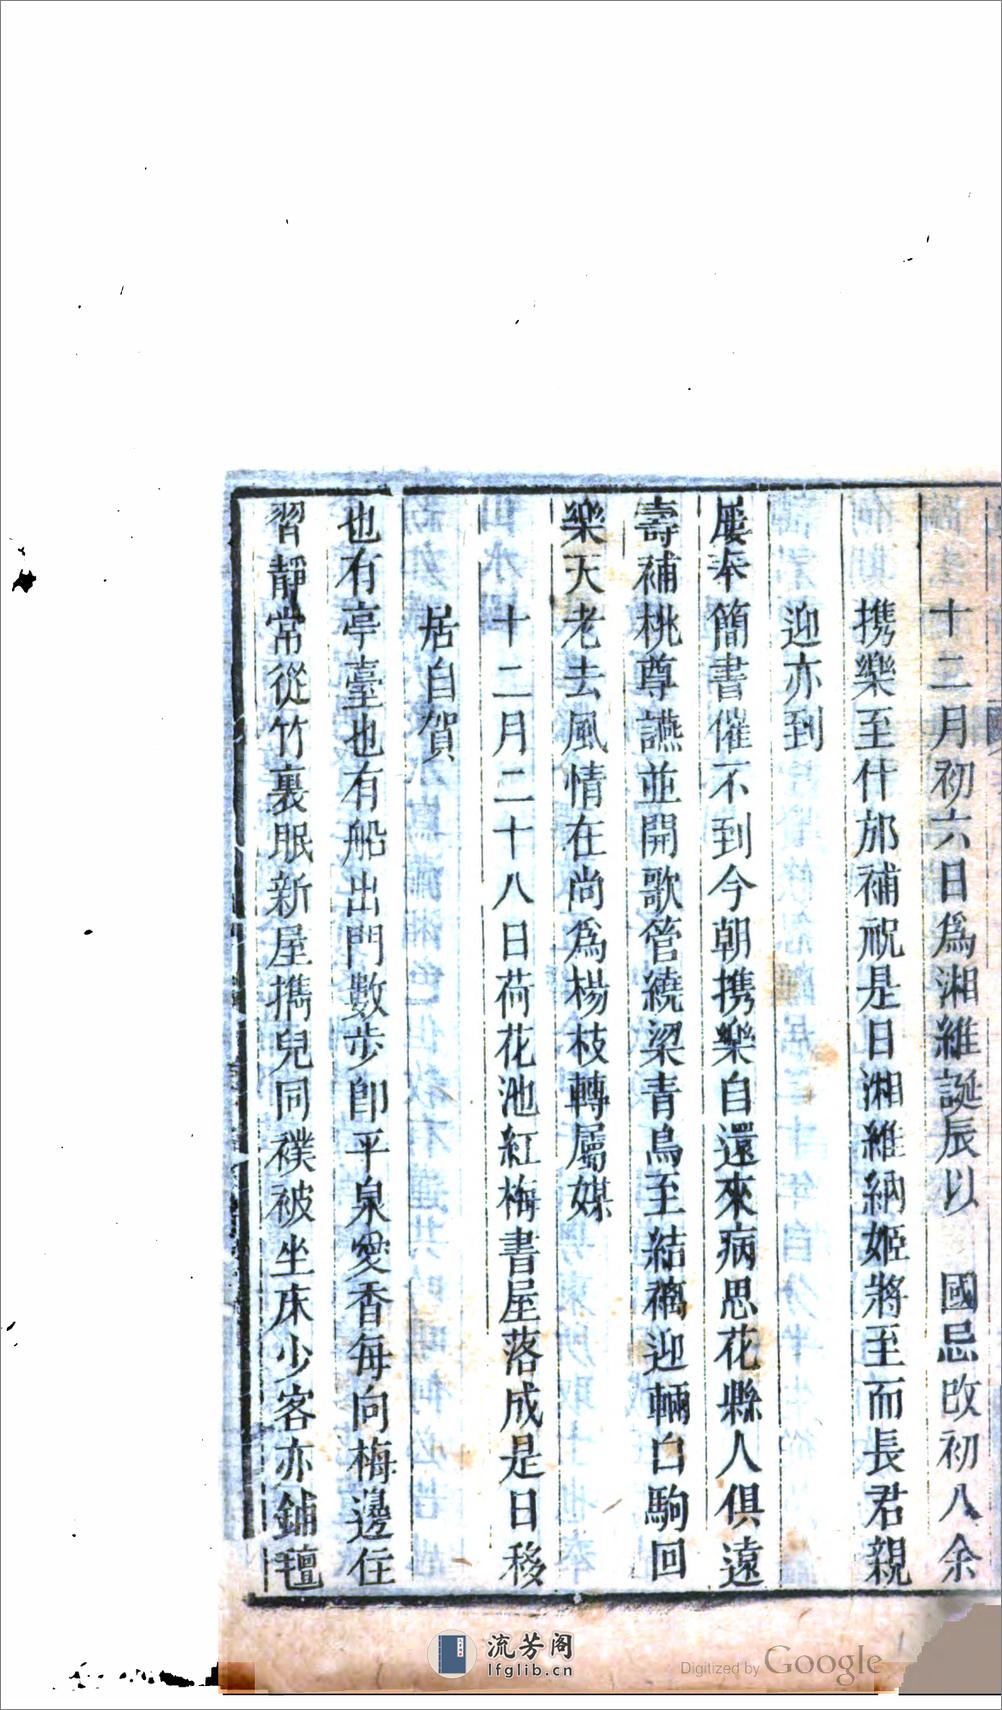 十二月初六日爲湘維誕辰以　國忌改初八余
携樂至什邡補祝是日湘維納姬將至而長君親
迎亦到
屢奉簡書催不到今朝携樂自還來病思花縣人俱遠
壽補桃尊讌並開歌管繞梁青鳥至結褵迎輛白駒回
樂天老去風情在尚爲楊枝轉屬媒
十二月二十八日荷花池紅梅書屋落成是日移
居自賀
也有亭臺也有船出門數步卽平泉愛香每向梅邊住
習靜常從竹裏眠新屋擕兒同襆被坐床少客亦鋪氊
流芳阁
lfglib.cn
Digitized by Google